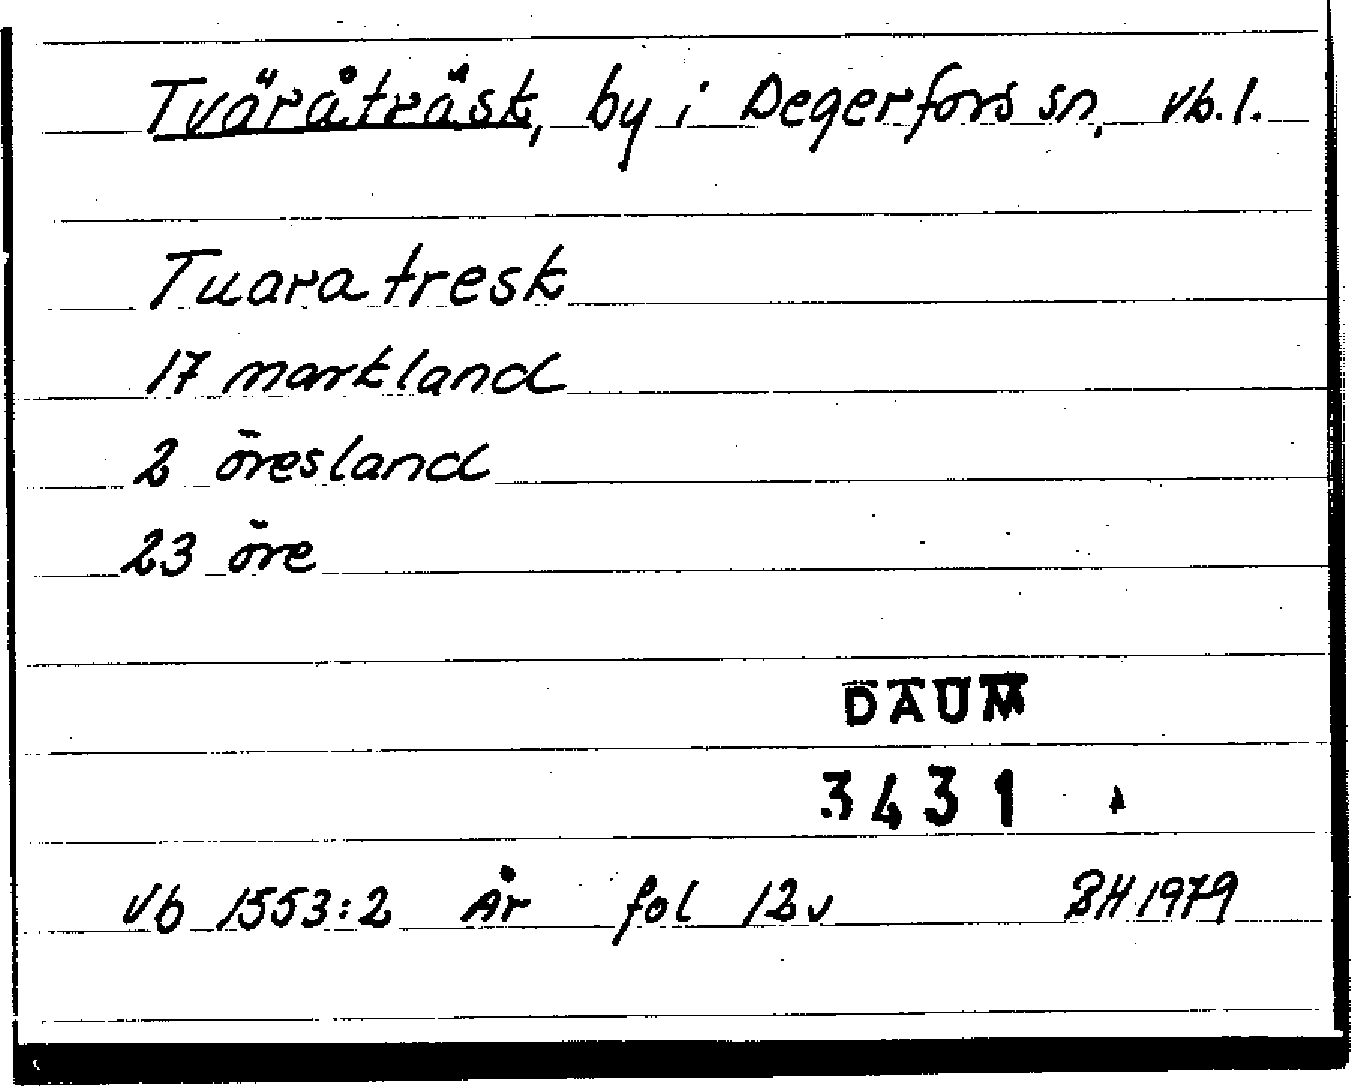 Tväråträsk, by i Degerfors sn, vb.l.
Tuara tresk
17 markland
2 öresland
23 öre
DAUM
3431
Vb 1553:2 År fol 12v BH 1979